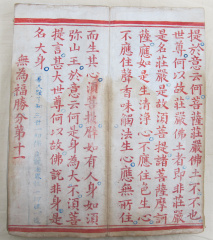 提於意云何菩薩莊嚴佛土不不也
世尊何以故莊嚴佛土者即非莊嚴
是名莊嚴是故須菩提諸菩薩摩訶
薩應如是生清淨心不應住色生心
不應住聲香味觸法生心應無所住
而生其心須菩提譬如有人身如須
彌山王於意云何是身為大不須菩
提言甚大世尊何以故佛說非身是
名大身
無為福勝分第十一